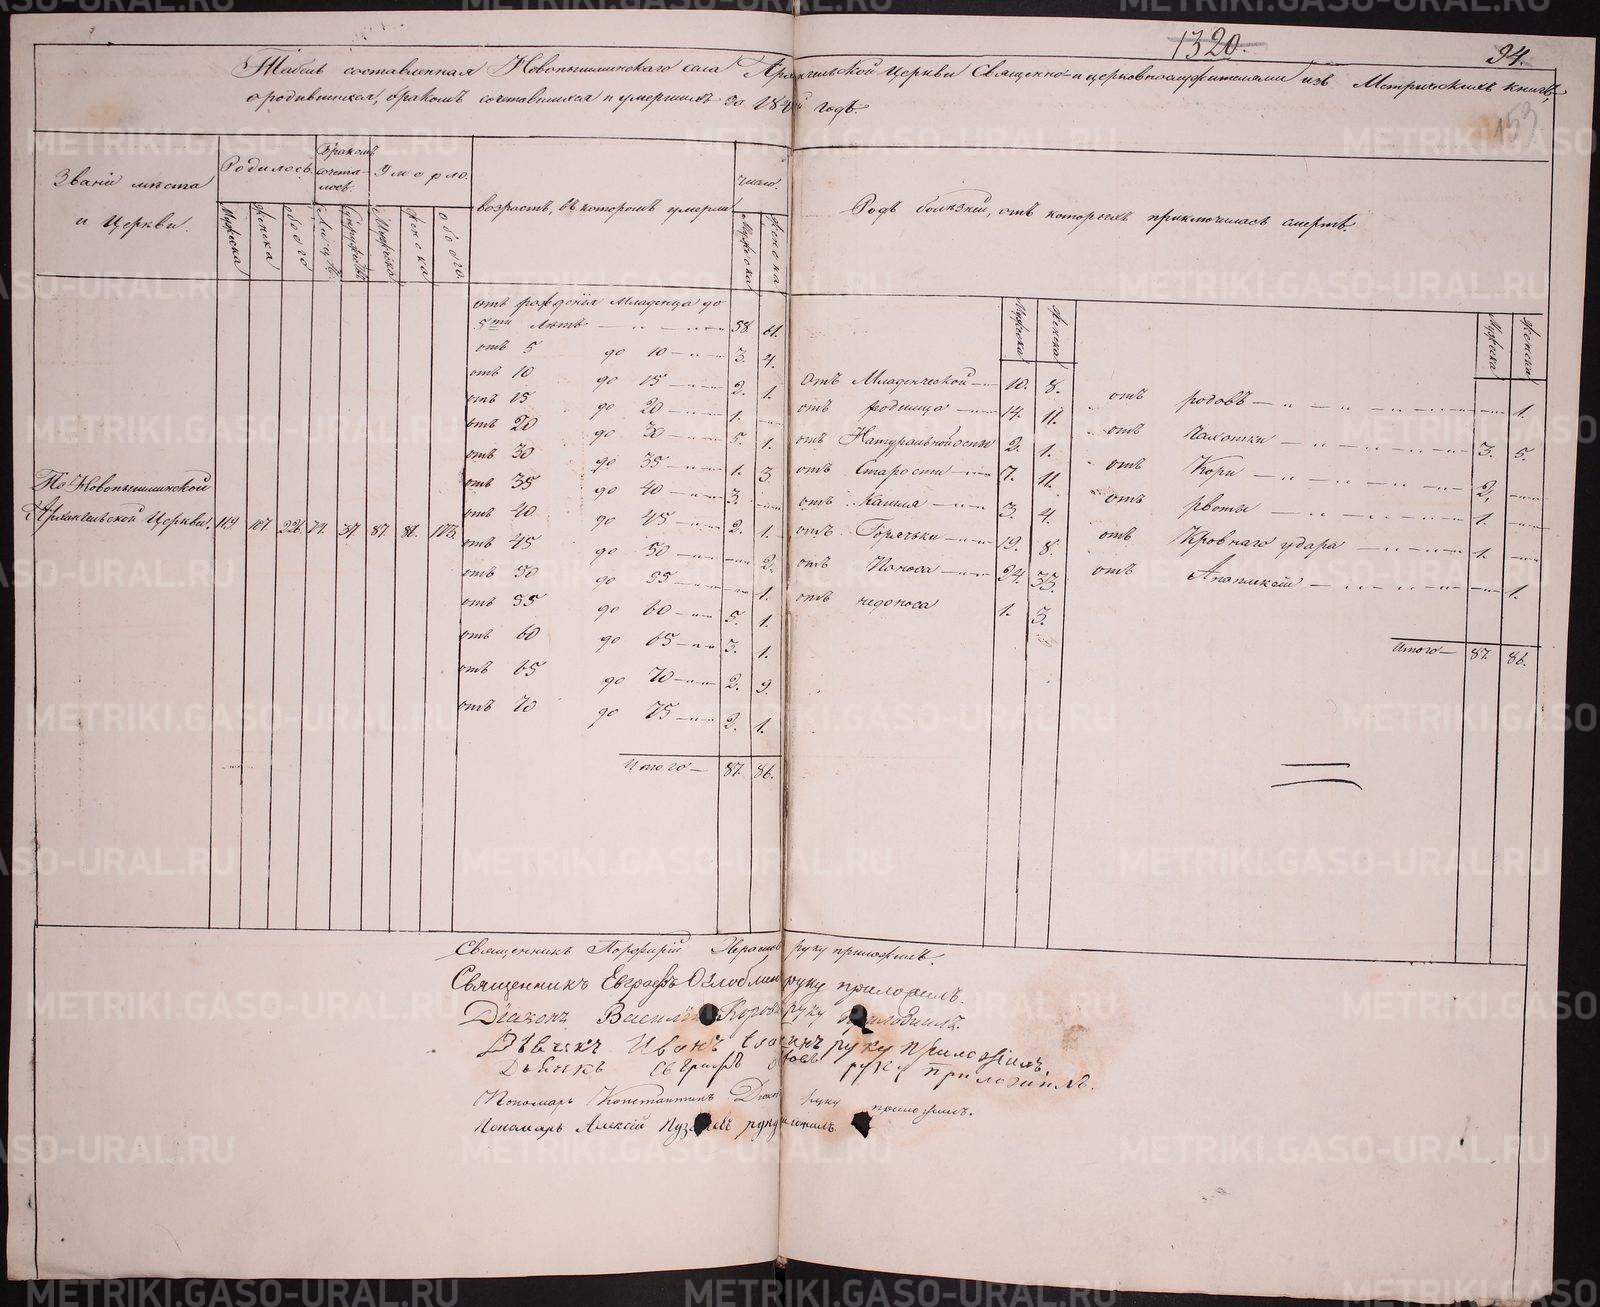 1320.
94.
153
Табель составленная Новопышминскаго села Архангельской Церкви Священно-и церковнослужителями изъ Метрическихъ книгъ,
о родившихся, бракомъ сочетавшихся и умершихъ за годъ.
Званіе мѣста
и Церкви.
Родилось.
Мужеска
Женска
обоего
Бракомъ сочета-
лось.
Умерло.
Мужеска
Женска
обоего
возрастъ, въ которомъ умерли
число.
Мужеска
Женска
Родъ болѣзней, отъ которыхъ приключилась смерть.
По Новопышминской
Архангельской Церкви. 119 107 226. 74. 37. 87. 86. 173.
отъ рожденія Младенца до
5ти Лѣтъ 58. 61.
отъ 5 до 10 3. 4.
отъ 10 до 15 2. 1.
отъ 15 до 20 1. —
отъ 20 до 30 5. 1.
отъ 30 до 35 1. 3.
отъ 35 до 40 3. —
отъ 40 до 45 2. 1.
отъ 45 до 50 — 2.
отъ 50 до 55 — 1.
отъ 55 до 60 5. 1.
отъ 60 до 65 3. 1.
отъ 65 до 70 2. 9.
отъ 70 до 75 2. 1.
Итого — 87. 86.
Мужеска Женска
отъ Младенческой 10. 8.
отъ родимца 14. 11.
отъ Натуральной оспы 2. 1.
отъ Старости 7. 11.
отъ Кашля 3. 4.
отъ Горячьки 19. 8.
отъ Поноса 24. 33.
отъ недоноса 1. 3.
Мужеска Женска
отъ родовъ — 1.
отъ Чахотки 3. 5.
отъ Кори 2. —
отъ рвоты 1. —
отъ Кровнаго удара 1. —
отъ Апаплексіи — 1.
Итого — 87. 86.
Священникъ Порфирій руку приложилъ.
Священникъ Евграфъ Оглоблин руку приложилъ.
Діаконъ Василій руку приложилъ.
Дьячекъ Иванъ руку приложилъ.
Дьячекъ Евграфъ руку приложилъ.
Пономарь Константинъ руку приложилъ.
Пономарь Алексей руку приложилъ.
METRIKI.GASO-URAL.RU